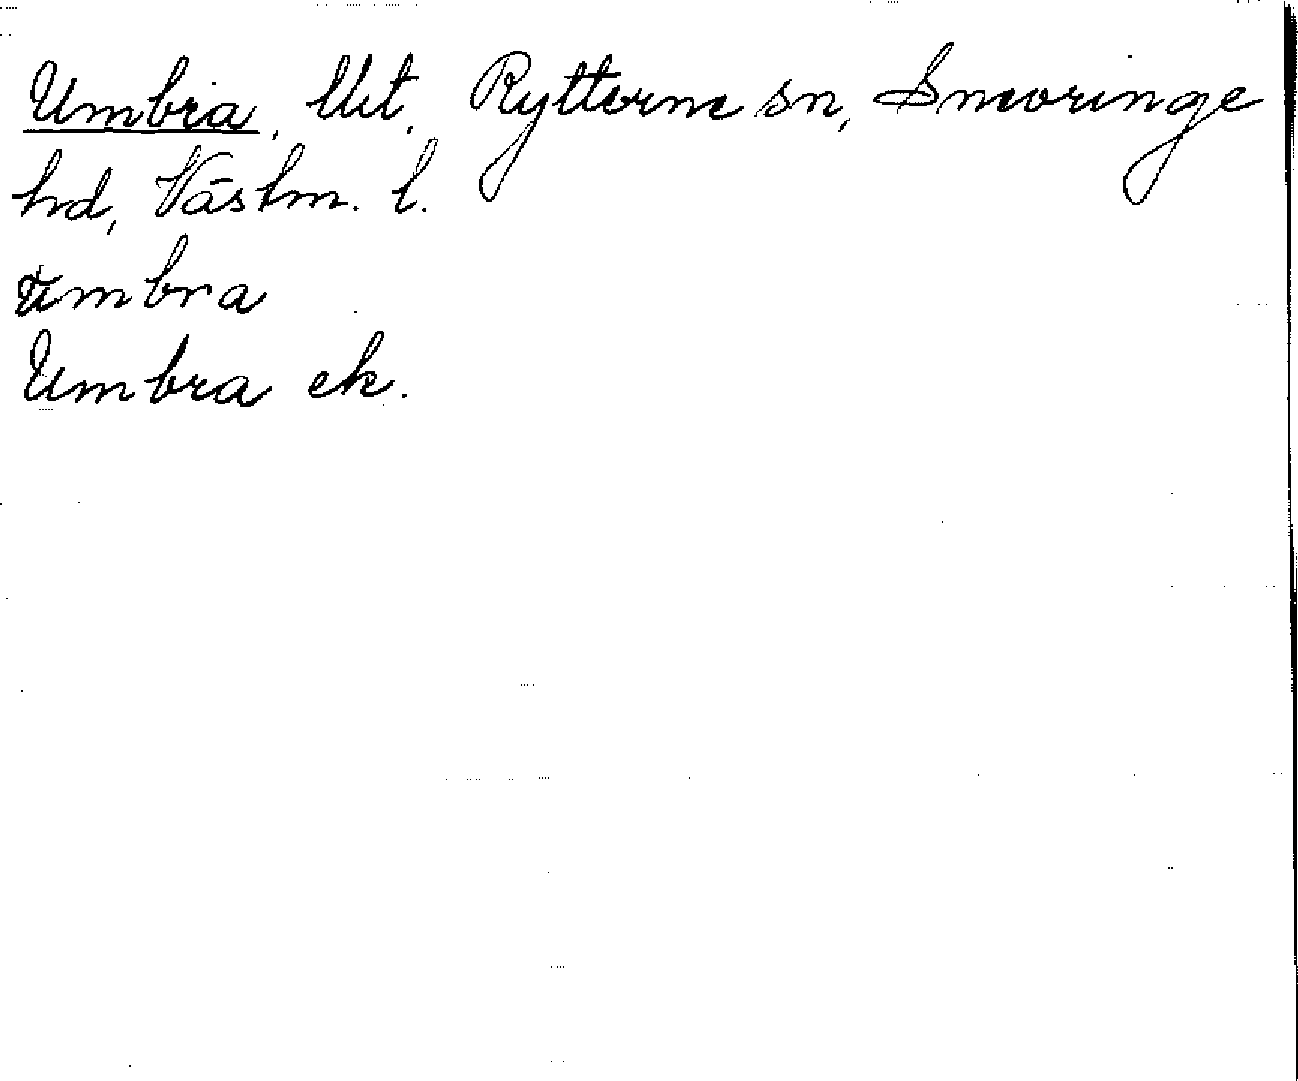 Umbra, Ut. Rytterne sn, Snevringe
hd, Västm. l.
umbra
Umbra ek.